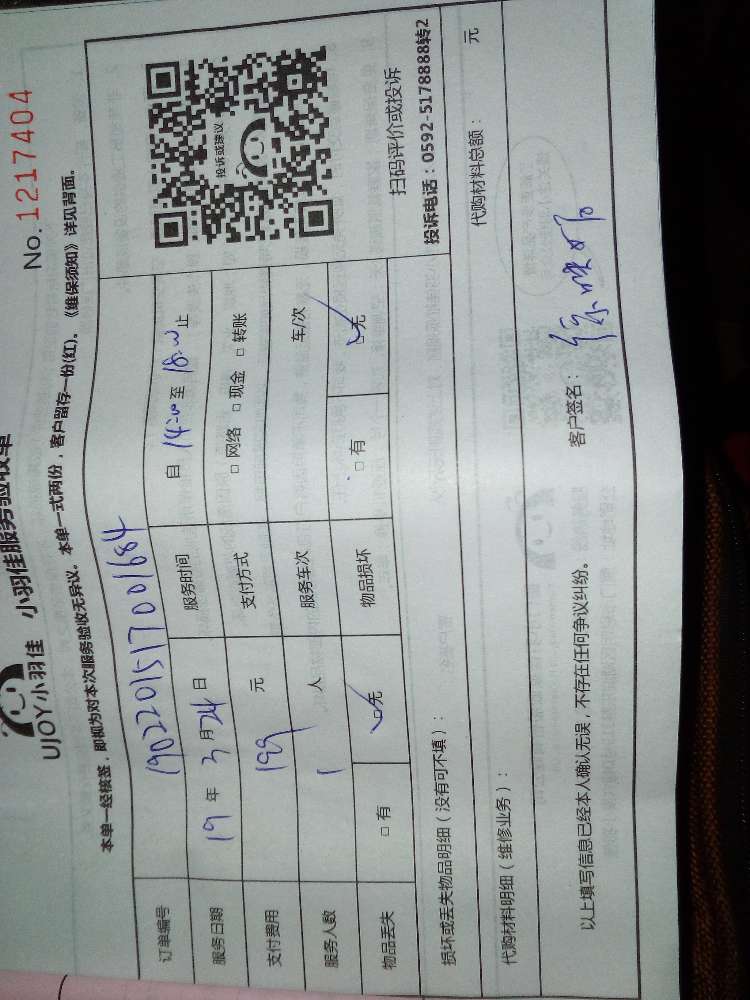 No.1217404
UJOY小羽佳 小羽佳服务验收单
本单一经核签，即视为对本次服务验收无异议。本单一式两份，客户留存一份(红)。《维保须知》详见背面。
订单编号 1902201517001684
服务日期 19 年 3 月 24 日 服务时间 自 14:00 至 18:00 止
支付费用 199 元 支付方式 □ 网络 □ 现金 □ 转账
服务人数 1 人 服务车次 车/次
物品丢失 □ 有 □ 无 物品损坏 □ 有 □ 无
投诉或建议
扫码评价或投诉
投诉电话：0592-5178888转2
损坏或丢失物品明细（没有可不填）：
代购材料明细（维修业务）： 代购材料总额： 元
以上填写信息已经本人确认无误，不存在任何争议纠纷。 客户签名：